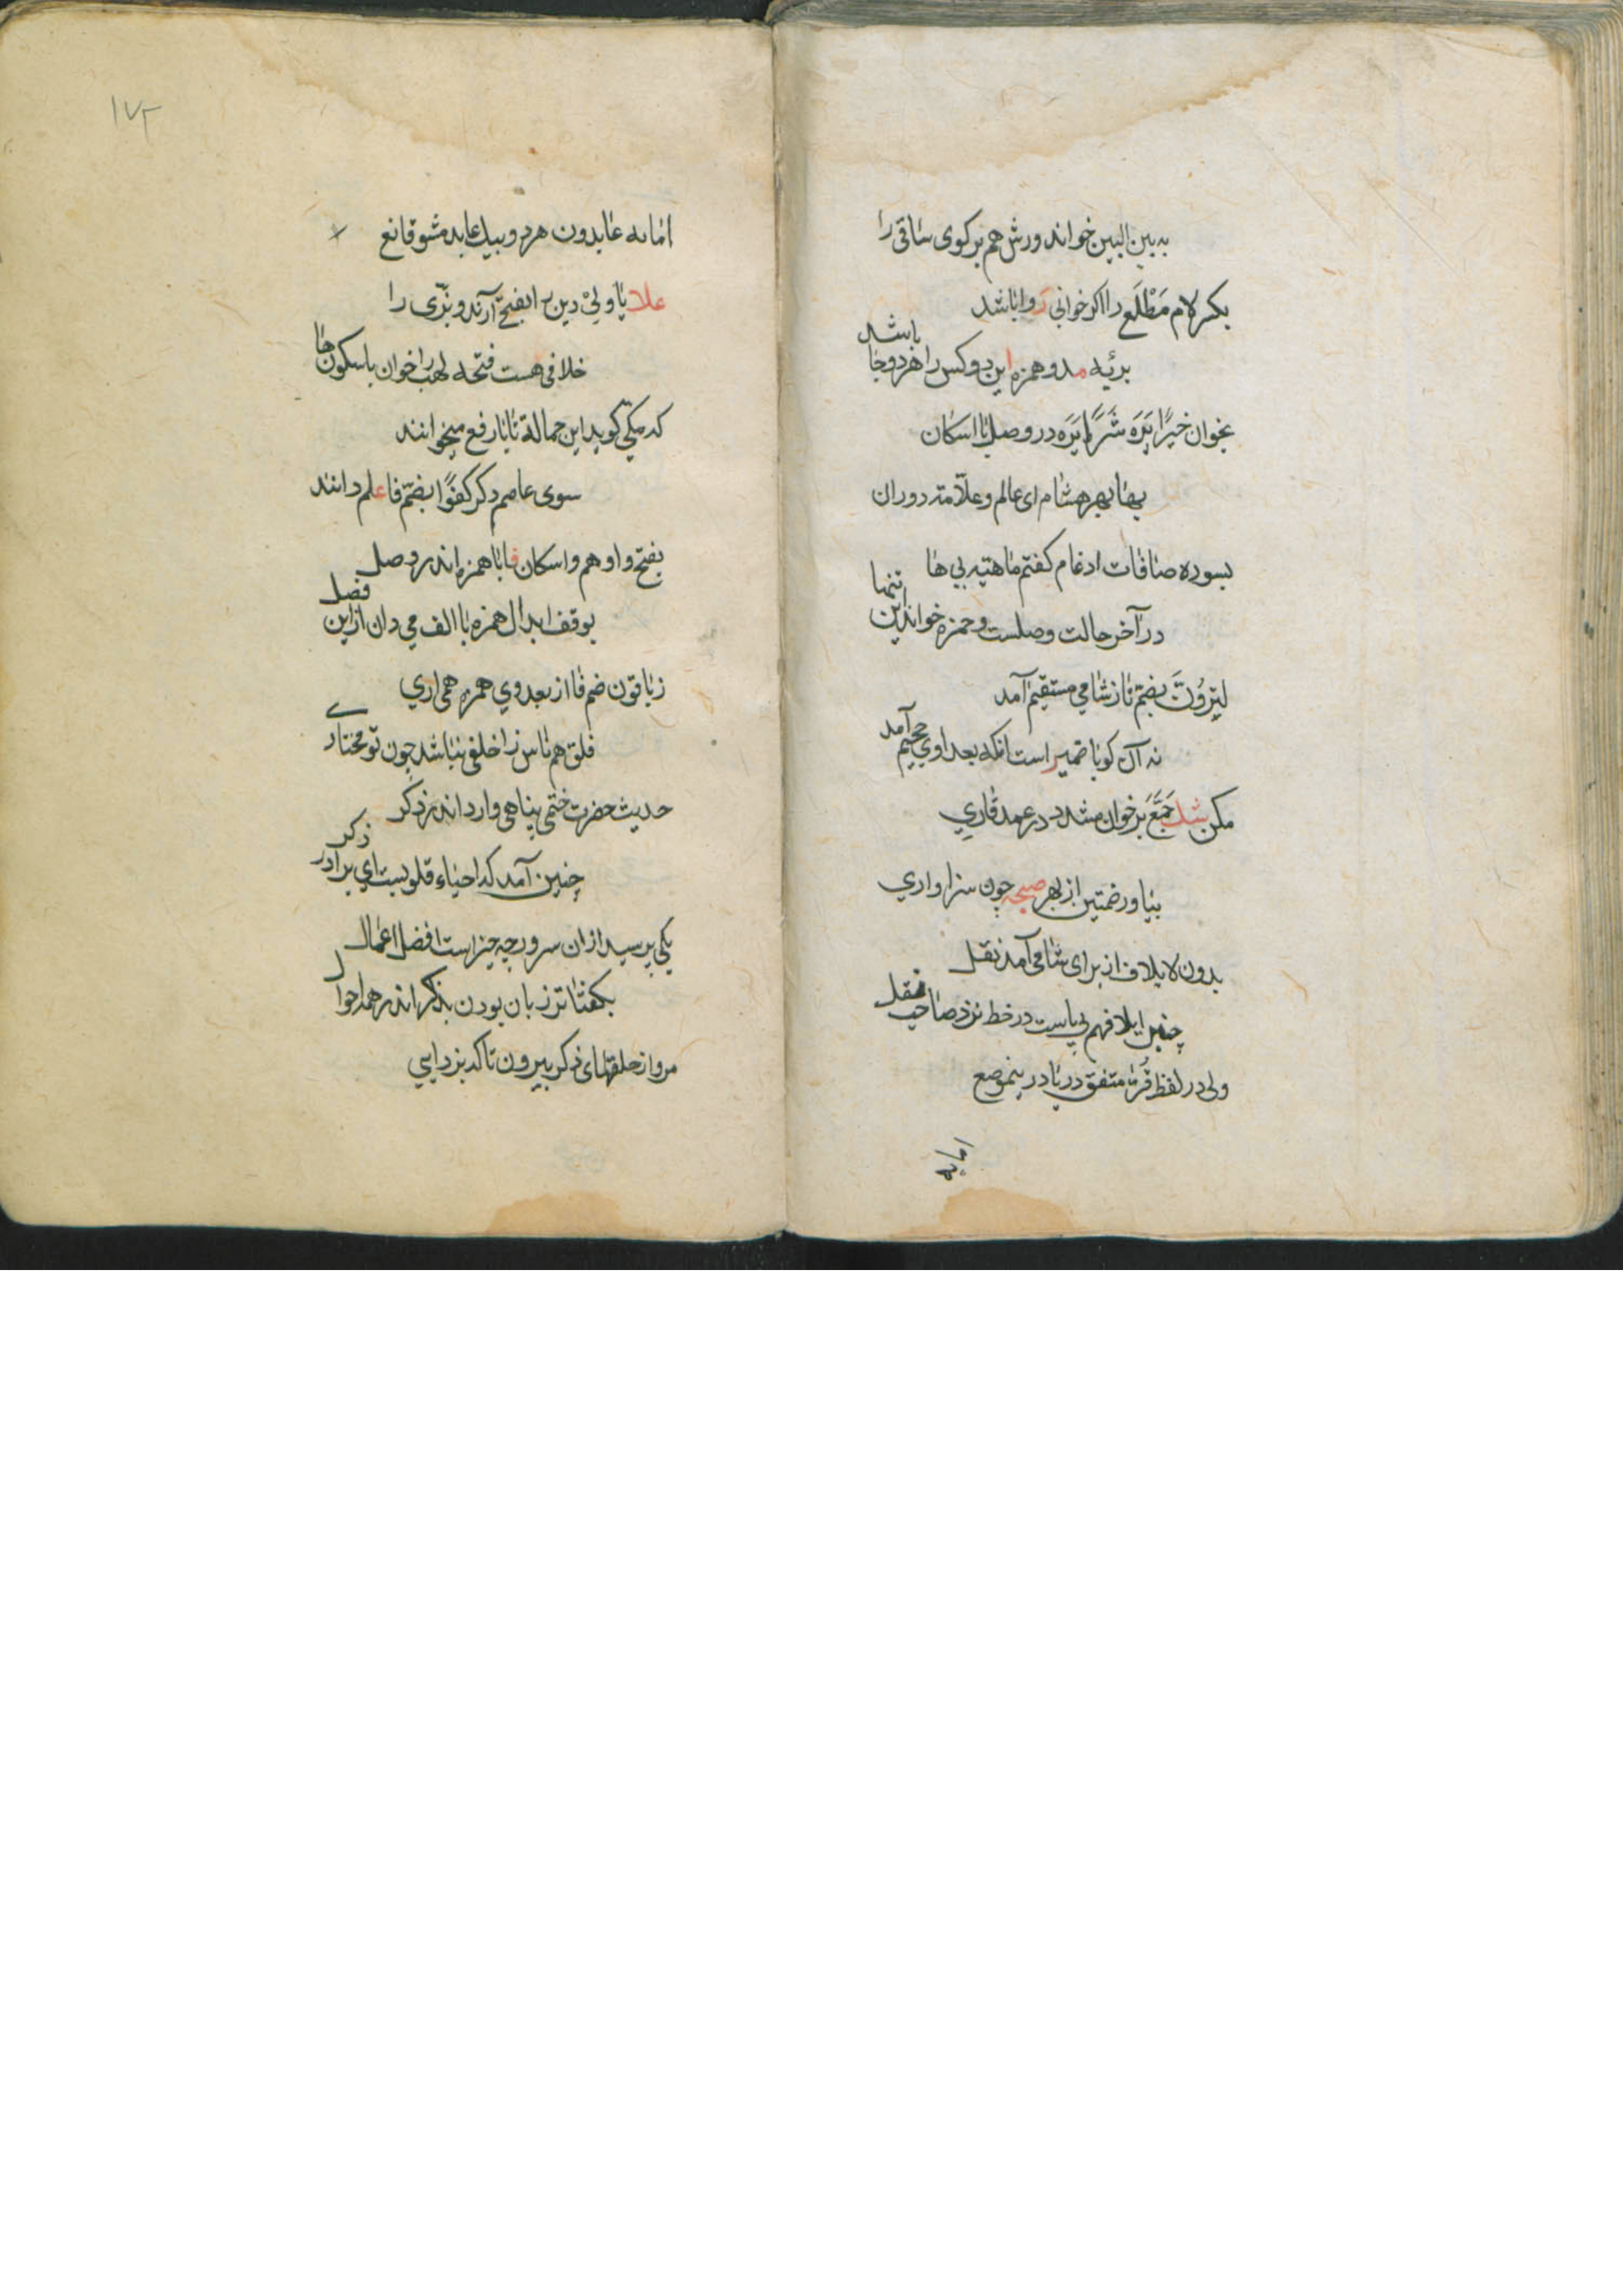 به بین البین خواند ورش هم بر کوی ساقی را
بکسر لام مَطْلَع را اکر خوانی روا باشد
بریٔه مد و همزه این دو کس را هر دو جا باشد
بخوان خیرًا یَرَه شَرًّا یَرَه در وصل با اسکان
بها بهر هشام ای عالم و علّامهٔ دوران
بسوره صافات ادغام کفتم ماهیَه بی ها
در آخر حالت وصلست و حمزه خواند این تنها
لَتَرَوُنَّ بضمّ تا ز شامی مستقیم آمد
نه آن کو با ضمیر است انکه بعد اوی جحیم آمد
مکن شک جَمَّعَ بر خوان مشدد در عمد قاری
بیاور ضمتین از بهر صحبه چون سزاواری
بدون لایلاف از برای شامی آمد نقل
چنین ایلافهم بی یاست در خط نزد صاحب عقل
ولی در لفظ قُرّا متفق در یا درینموضع
اما به
۱۷۲
اما به عابدون هر دو بیک عابد مشو قانع
علا یا ولیَ دین را بفتح آرند و بزّی را
خلافی هست فتحه لهب را خوان باسکون ها
که مکّی کوید این حمالة تا با رفع میخوانند
سوی عاصم دکر کفوًا بضمّ فا علم دانند
بفتح واو هم و اسکان فا با همزه اندر وصل
بوقف ابدال همزه با الف می دان ازاین فصل
ز باقون ضم فا از بعد وی همزه همی اری
فلق هم ناس را خلفی نباشد چون تو مختاری
حدیث حضرت ختمی پناهی وارد اندر ذکر
چنین آمد که احیاء قلوبست ای برادر ذکر
یکی پرسید ازان سرور چه چیز است افضل اعمال
بکفتا تر زبان بودن بذکر اندر همه احوال
مرو از حلقهای ذکر بیرون تا که بزدایی